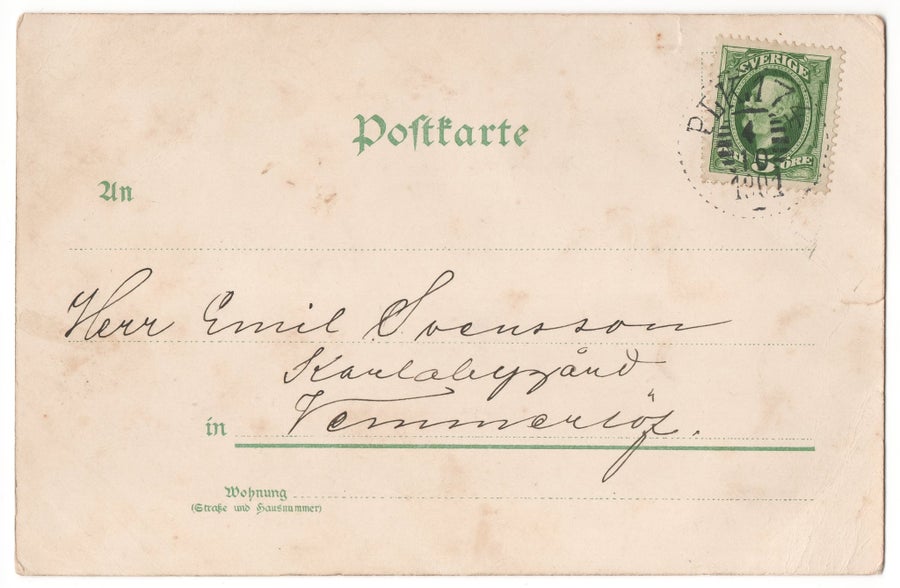 Postkarte
SVERIGE
PLK 17
4
10
1901
5 ÖRE
An
Herr Emil Svensson
Karlabygård
Vemmerlöf.
in
Wohnung
(Straße und Hausnummer)